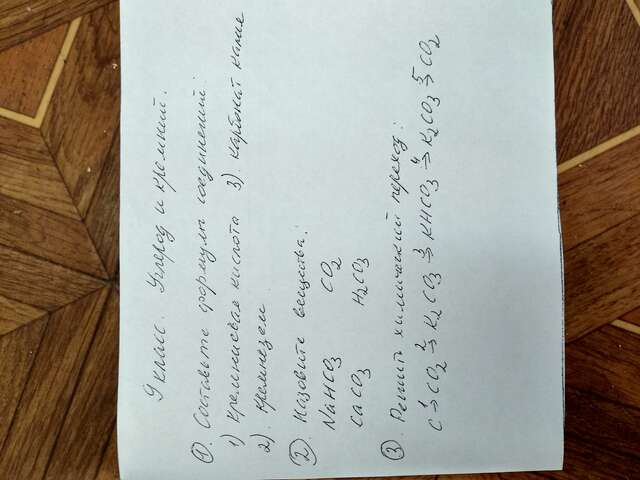 9 класс. Углерод и кремний.
① Составьте формулы соединений:
1) Кремниевая кислота 3). Карбонат калия
2). Кремнезем
② Назовите вещества:
NaHCO3 CO2
CaCO3 H2CO3
③. Решить химический переход:
C →1 CO2 →2 K2CO3 →3 KHCO3 →4 K2CO3 →5 CO2